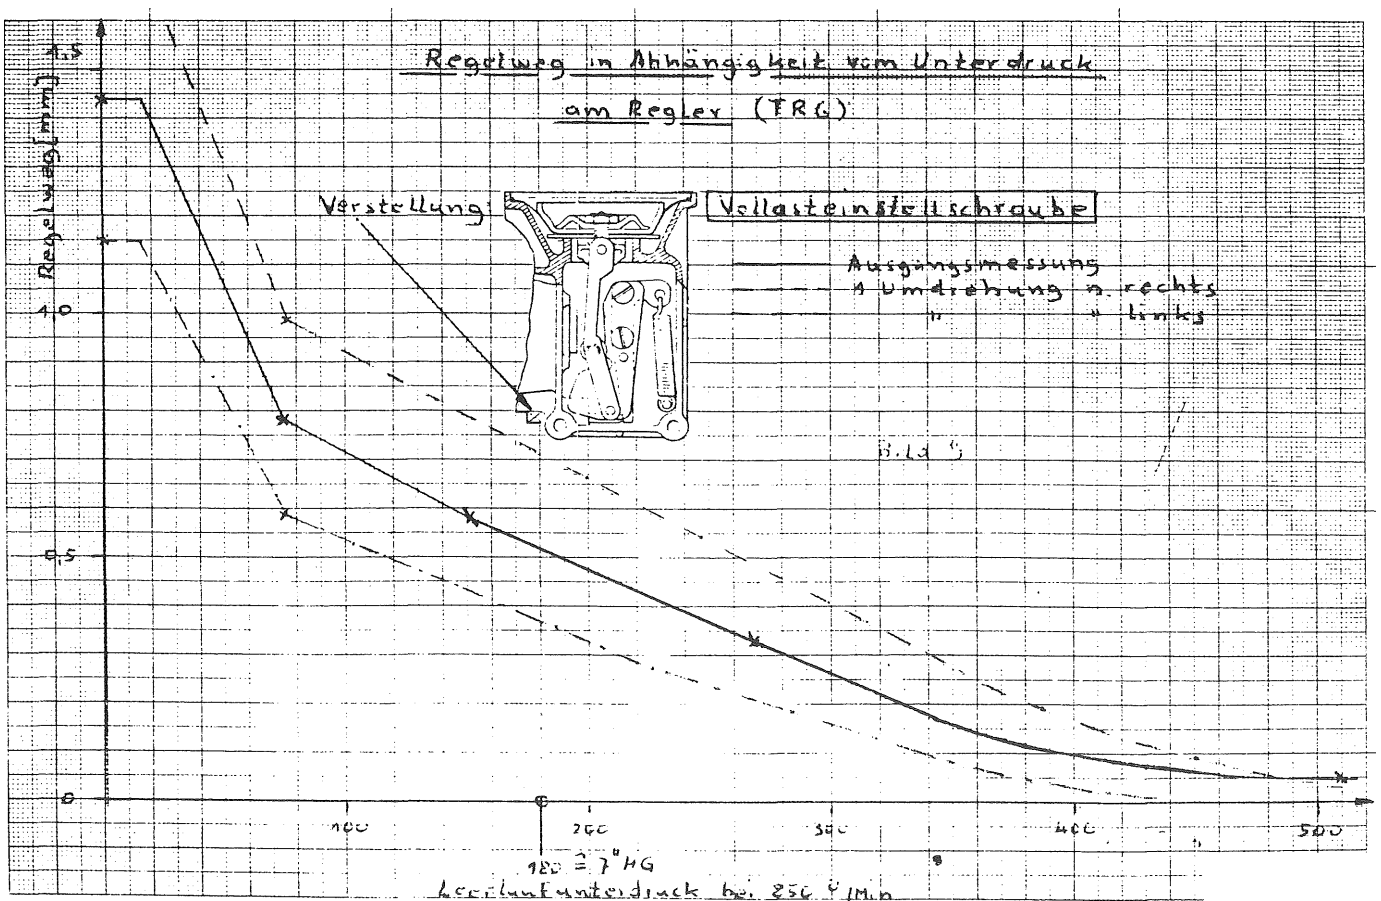 Regelweg in Abhängigkeit vom Unterdruck
am Regler (TRG)
Regelweg [mm]
1,5
1,0
0,5
0
Verstellung
Vollasteinstellschraube
Ausgangsmessung
1 Umdrehung n. rechts
" " links
Bild
100
200
300
400
500
180 ≙ 7" HG
Leerlaufunterdruck bei 850 U/Min